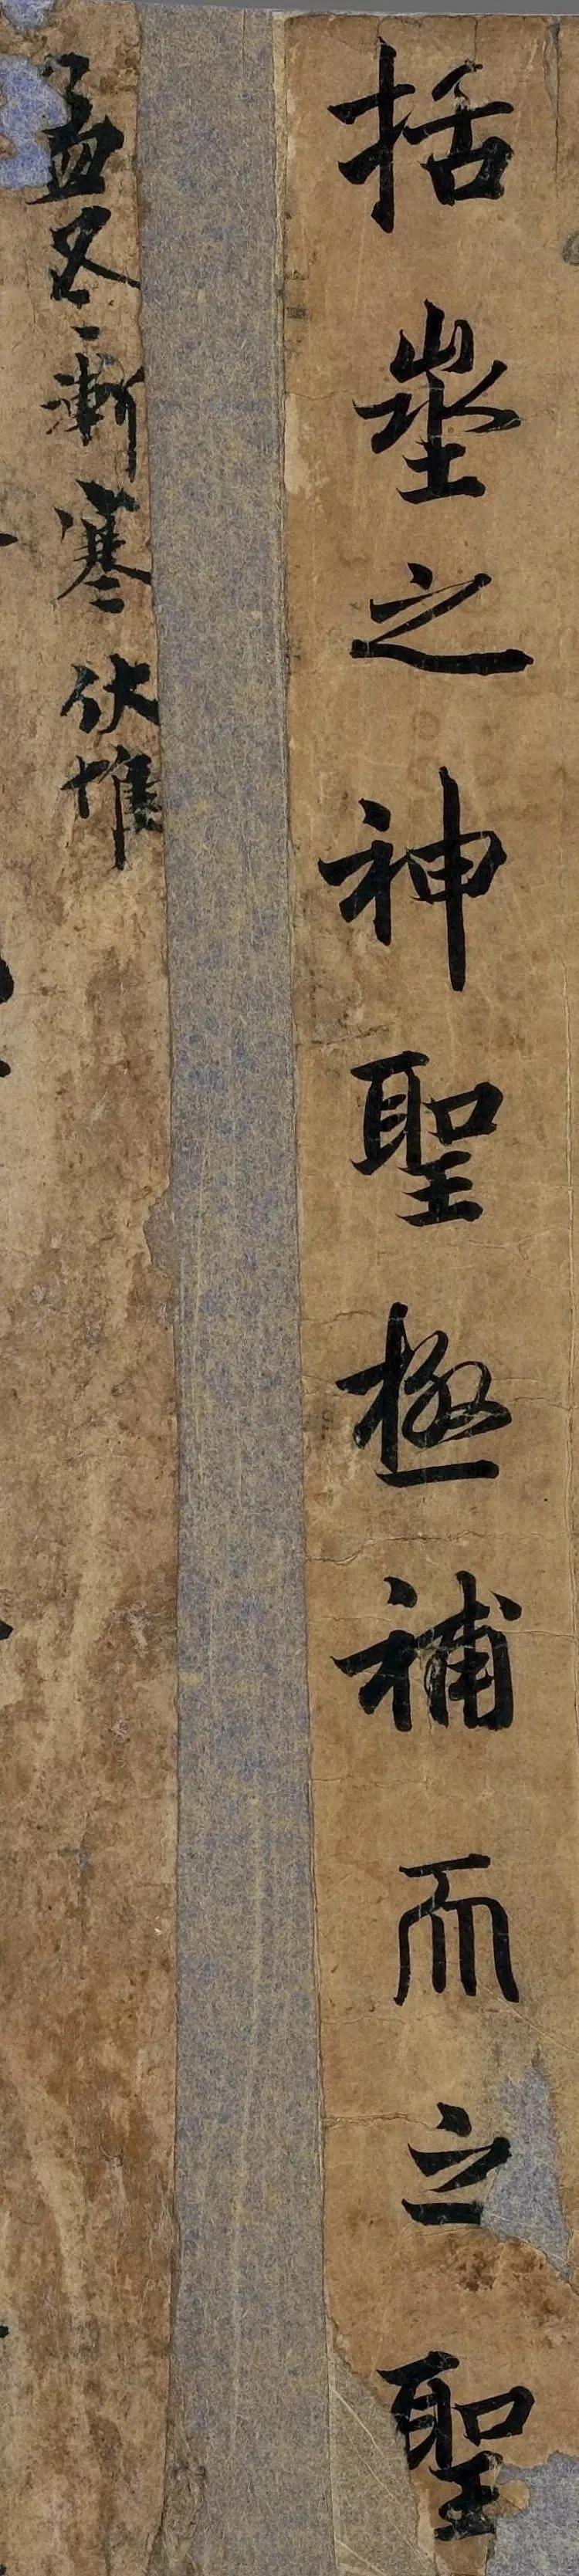 括埊之神聖極補而之聖
孟冬漸寒伏惟